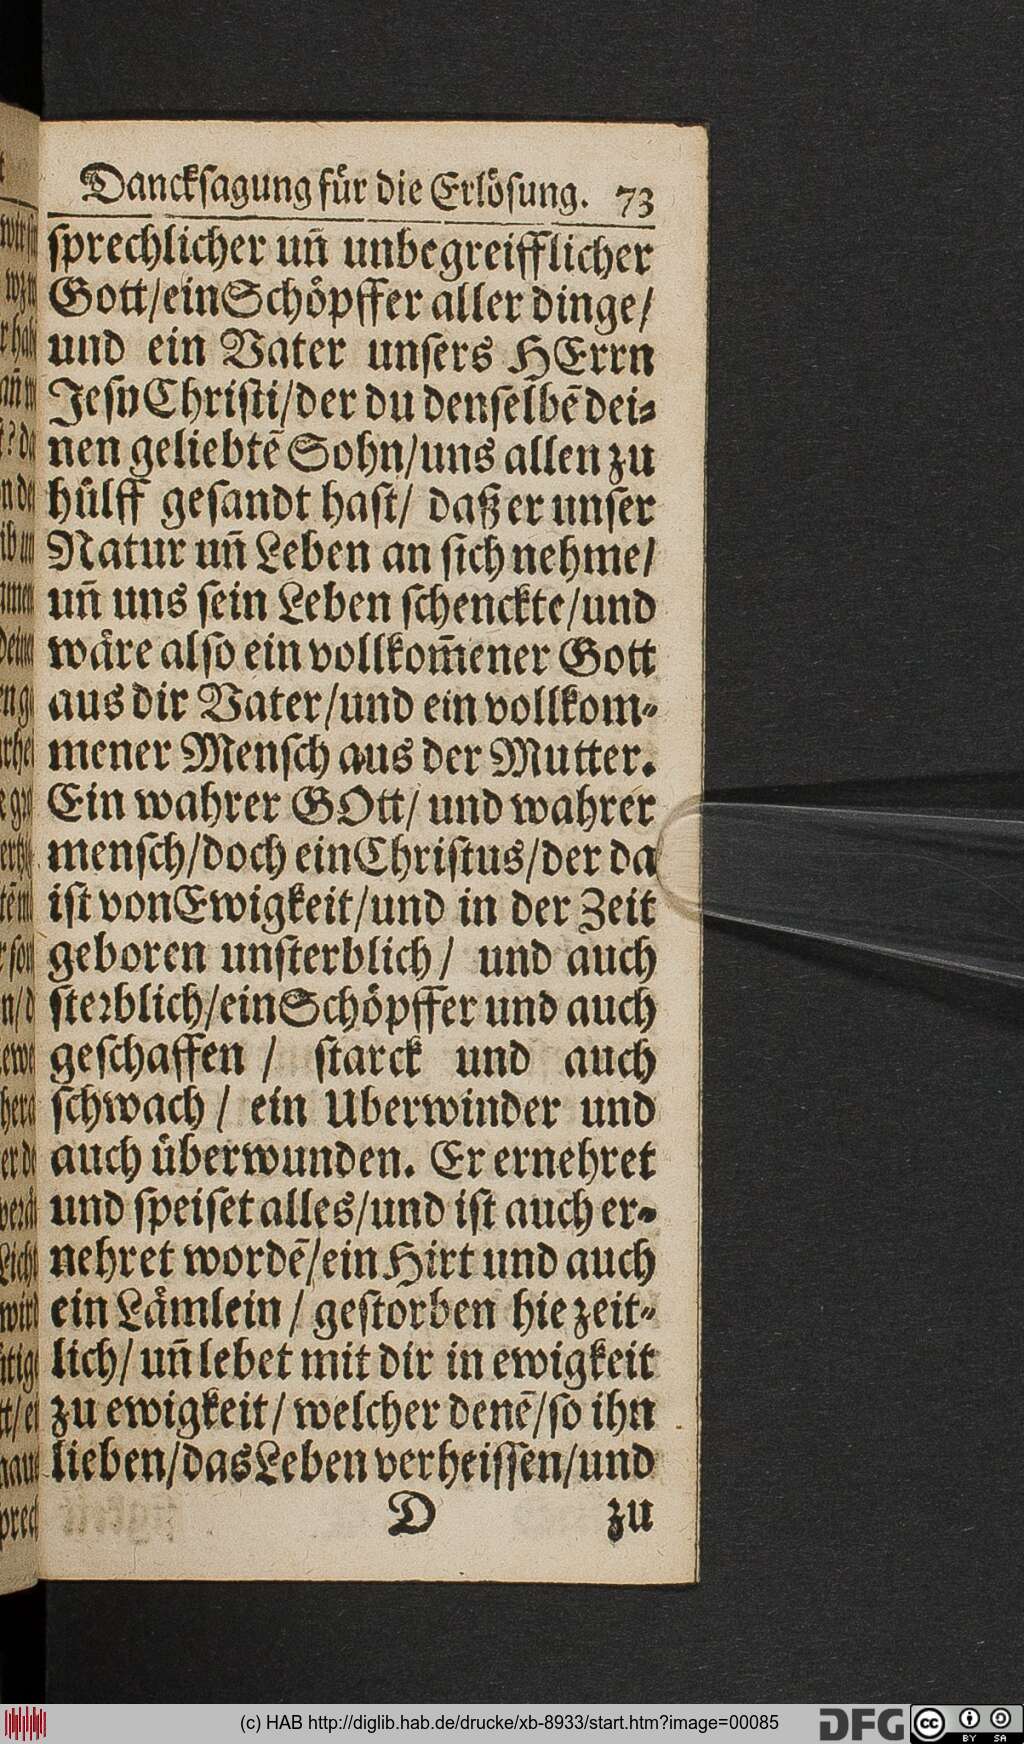 Danckſagung fuͤr die Erloͤſung. 73
ſprechlicher un̄ unbegreifflicher
Gott/ein Schoͤpffer aller dinge/
und ein Vater unſers HErrn
Jeſu Chriſti/der du denſelbē dei⸗
nen geliebtē Sohn/uns allen zu
huͤlff geſandt haſt/ daß er unſer
Natur un̄ Leben an ſich nehme/
un̄ uns ſein Leben ſchenckte/und
waͤre alſo ein vollkom̄ener Gott
aus dir Vater/und ein vollkom⸗
mener Menſch aus der Mutter.
Ein wahrer GOtt/ und wahrer
menſch/doch ein Chriſtus/der da
iſt von Ewigkeit/und in der Zeit
geboren unſterblich/ und auch
ſteꝛblich/ein Schoͤpffer und auch
geſchaffen / ſtarck und auch
ſchwach / ein Uberwinder und
auch uͤberwunden. Er ernehret
und ſpeiſet alles/und iſt auch er⸗
nehret wordē/ein Hirt und auch
ein Laͤmlein / geſtorben hie zeit⸗
lich/ un̄ lebet mit dir in ewigkeit
zu ewigkeit/ welcher denē/ſo ihn
lieben/das Leben verheiſſen/und
D zu
(c) HAB http://diglib.hab.de/drucke/xb-8933/start.htm?image=00085
DFG cc BY SA